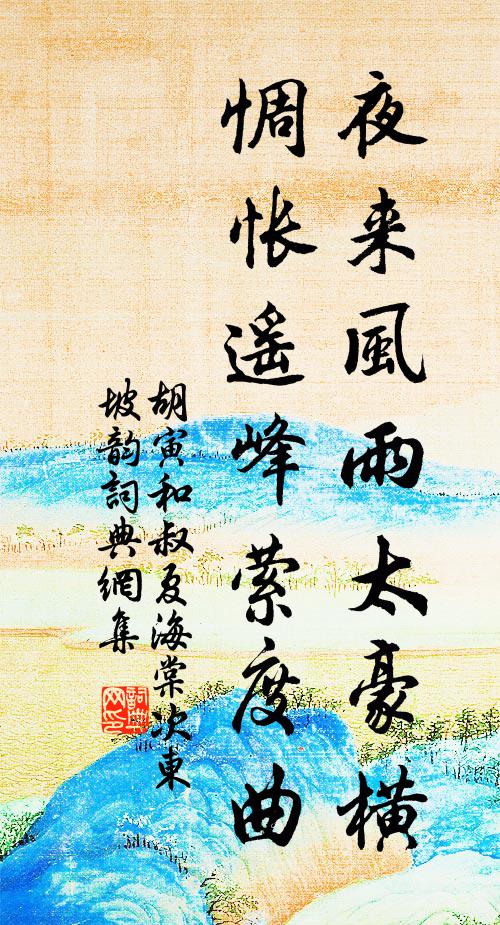 夜来風雨太豪橫
惆怅遥峰萦度曲
胡寅和叔夏海棠次東
坡韵詞典網集